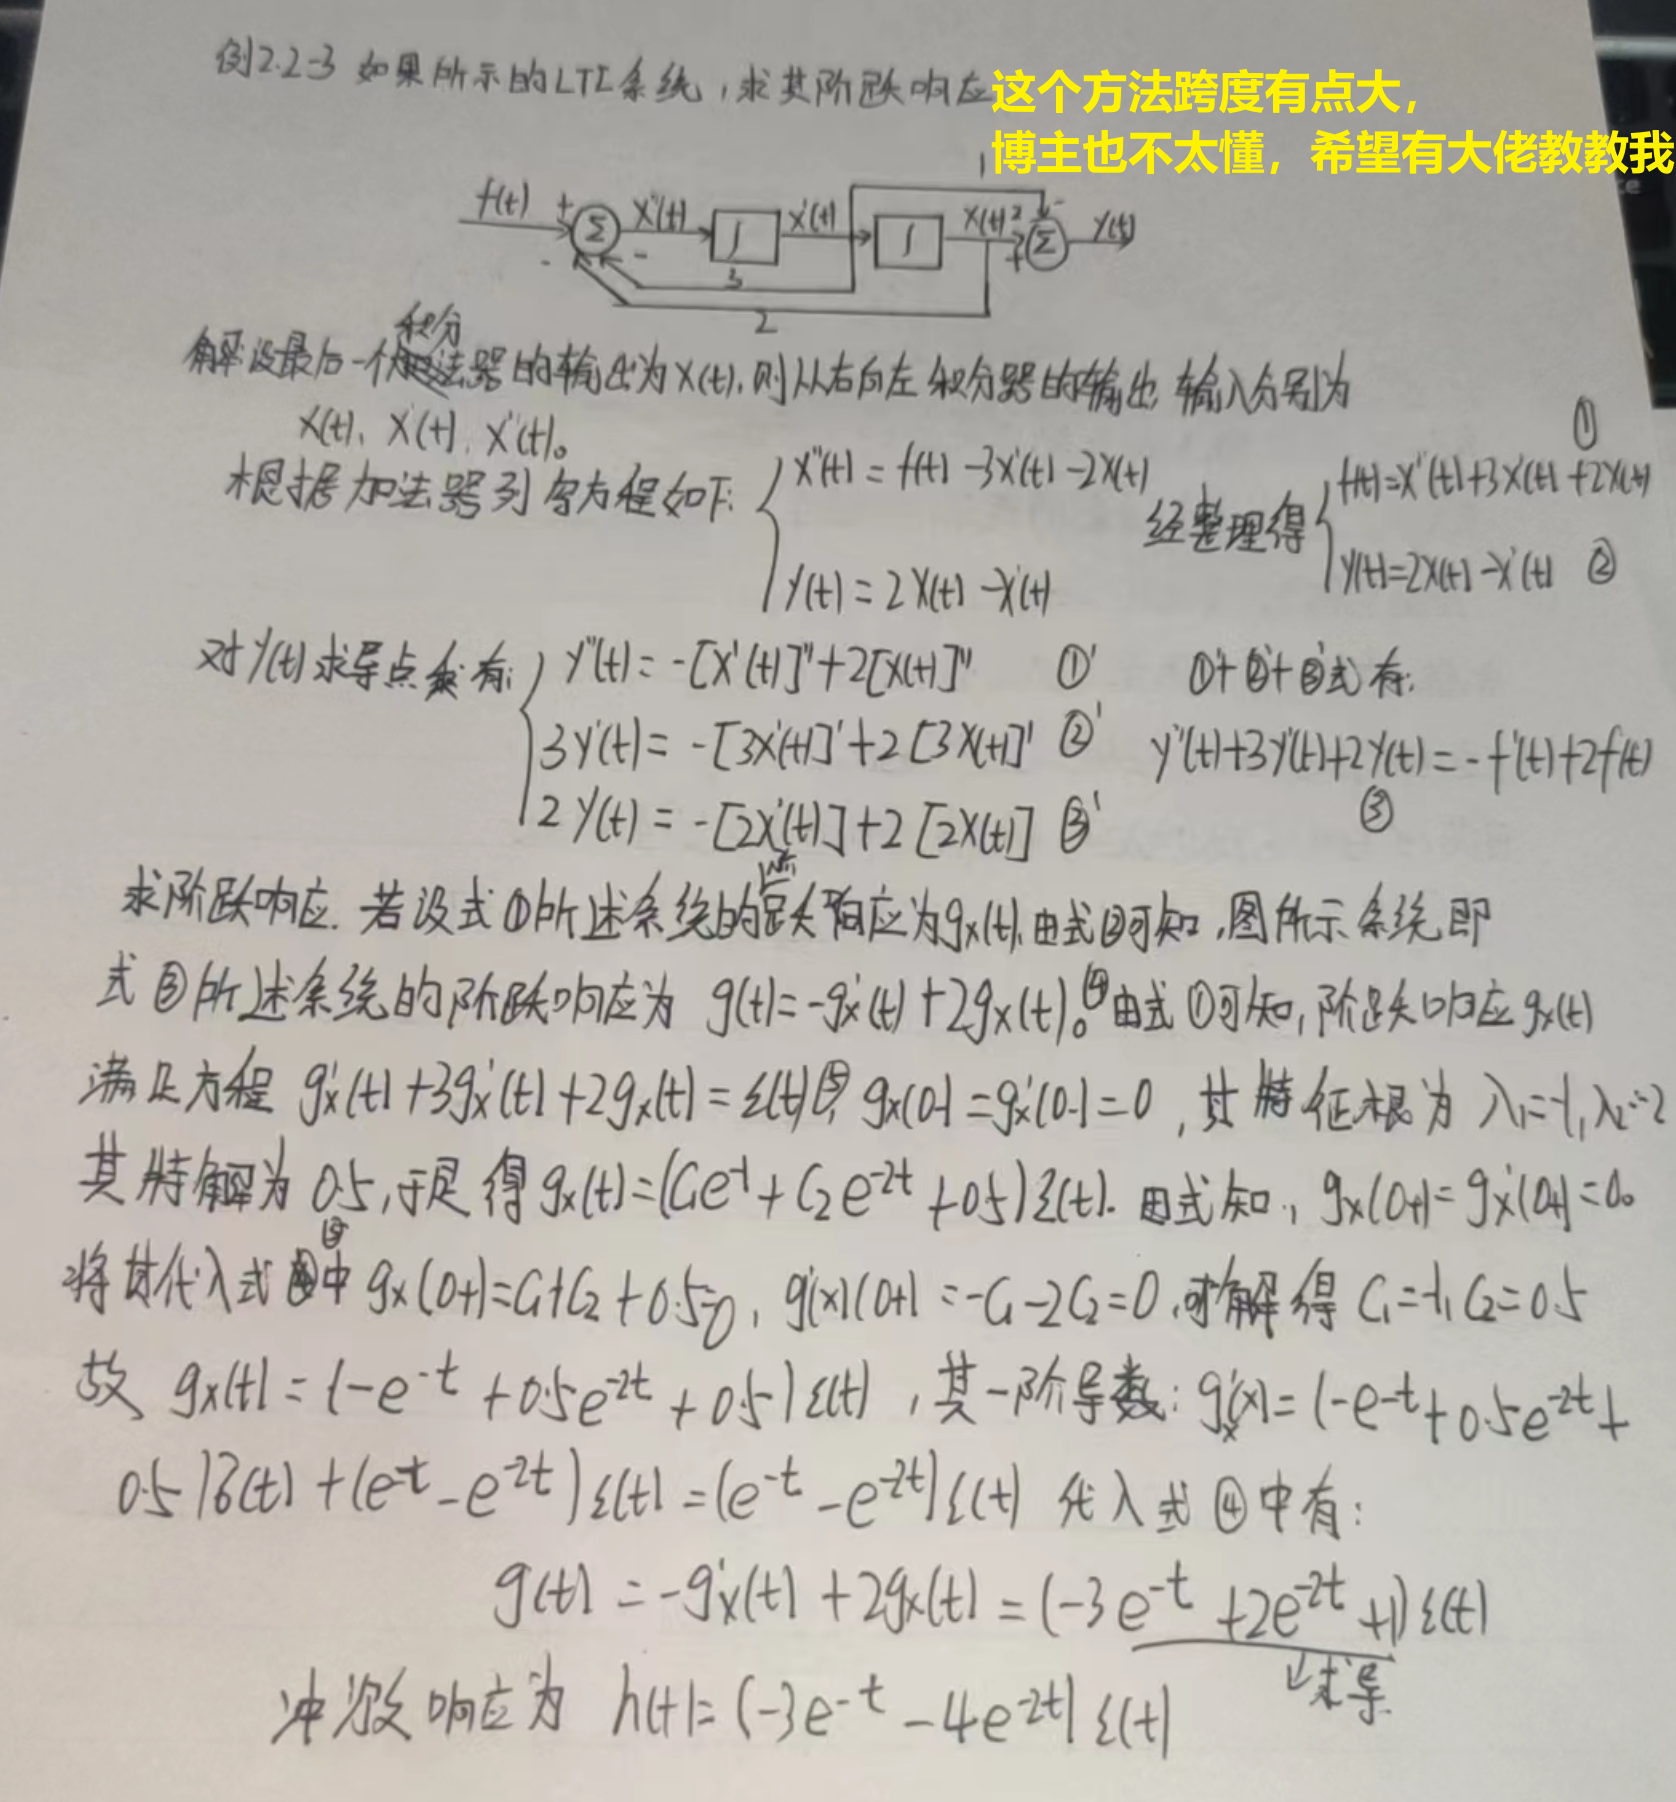 例2.2-3 如果所示的LTI系统,求其阶跃响应
这个方法跨度有点大，
博主也不太懂，希望有大佬教教我
1
f(t) + Σ x''(t) ∫ x'(t) ∫ x(t) 2 - Σ y(t)
- - 3 +
2
积分
解设最后一个器的输出为x(t),则从右向左积分器的输出,输入分别为
x(t)、x'(t)、x''(t)。
根据加法器列写方程如下: x''(t) = f(t) -3x'(t) -2x(t) 经整理得 f(t)=x''(t)+3x'(t)+2x(t) ①
y(t) = 2x(t) -x'(t) y(t)=2x(t)-x'(t) ②
对y(t)求导点乘有: y''(t) = -[x'(t)]''+2[x(t)]'' ①' ①'+②'+③'式有:
3y'(t) = -[3x'(t)]'+2[3x(t)]' ②' y''(t)+3y'(t)+2y(t) = -f'(t)+2f(t)
2y(t) = -[2x'(t)]+2[2x(t)] ③' ③
求阶跃响应.若设式①所述系统的阶跃响应为gx(t),由式②可知,图所示系统即
式③所述系统的阶跃响应为 g(t)=-gx'(t)+2gx(t)。④由式①可知,阶跃响应gx(t)
满足方程 gx''(t)+3gx'(t)+2gx(t)=ε(t)⑤, gx(0-)=gx'(0-)=0,其特征根为 λ1=-1,λ2=-2
其特解为 0.5,于是得 gx(t)=(C1e^-t + C2e^-2t +0.5)ε(t). 由式知, gx(0+)=gx'(0+)=0。
将其代入式⑤中 gx(0+)=C1+C2+0.5=0, g'(x)(0+) =-C1-2C2=0,可解得 C1=-1,C2=0.5
故 gx(t) = (-e^-t +0.5e^-2t +0.5)ε(t) ,其一阶导数: gx'(x)=(-e^-t+0.5e^-2t+
0.5)δ(t) +(e^-t -e^-2t)ε(t) =(e^-t -e^-2t)ε(t) 代入式④中有:
g(t) = -gx'(t) +2gx(t) = (-3e^-t +2e^-2t +1)ε(t)
↓求导
冲激响应为 h(t)= (-3e^-t -4e^-2t)ε(t)